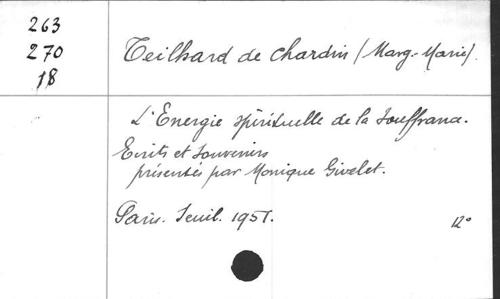 263
270
18
Teilhard de Chardin (Marg.-Marie).
L'Energie spirituelle de la Souffrance.
Ecrits et Souvenirs
présentés par Monique Givelet.
Paris. Seuil. 1951.
12°